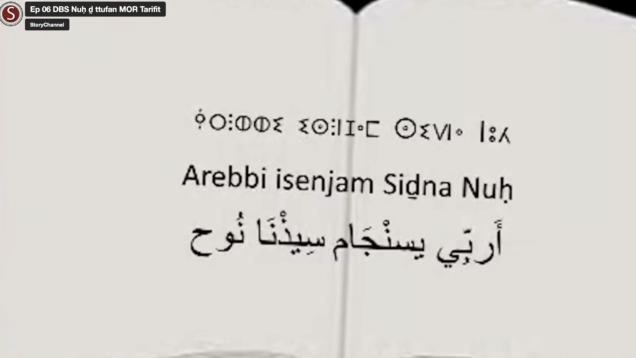 Ep 06 DBS Nuḥ ḏ ttufan MOR Tarifit
StoryChannel
ⴰⵔⴻⴱⴱⵉ ⵉⵙⴻⵏⵊⴰⵎ ⵙⵉⴷⵏⴰ ⵏⵓⵃ
Arebbi isenjam Siḏna Nuḥ
أَربِّي يسنْجَام سِيذْنَا نُوح